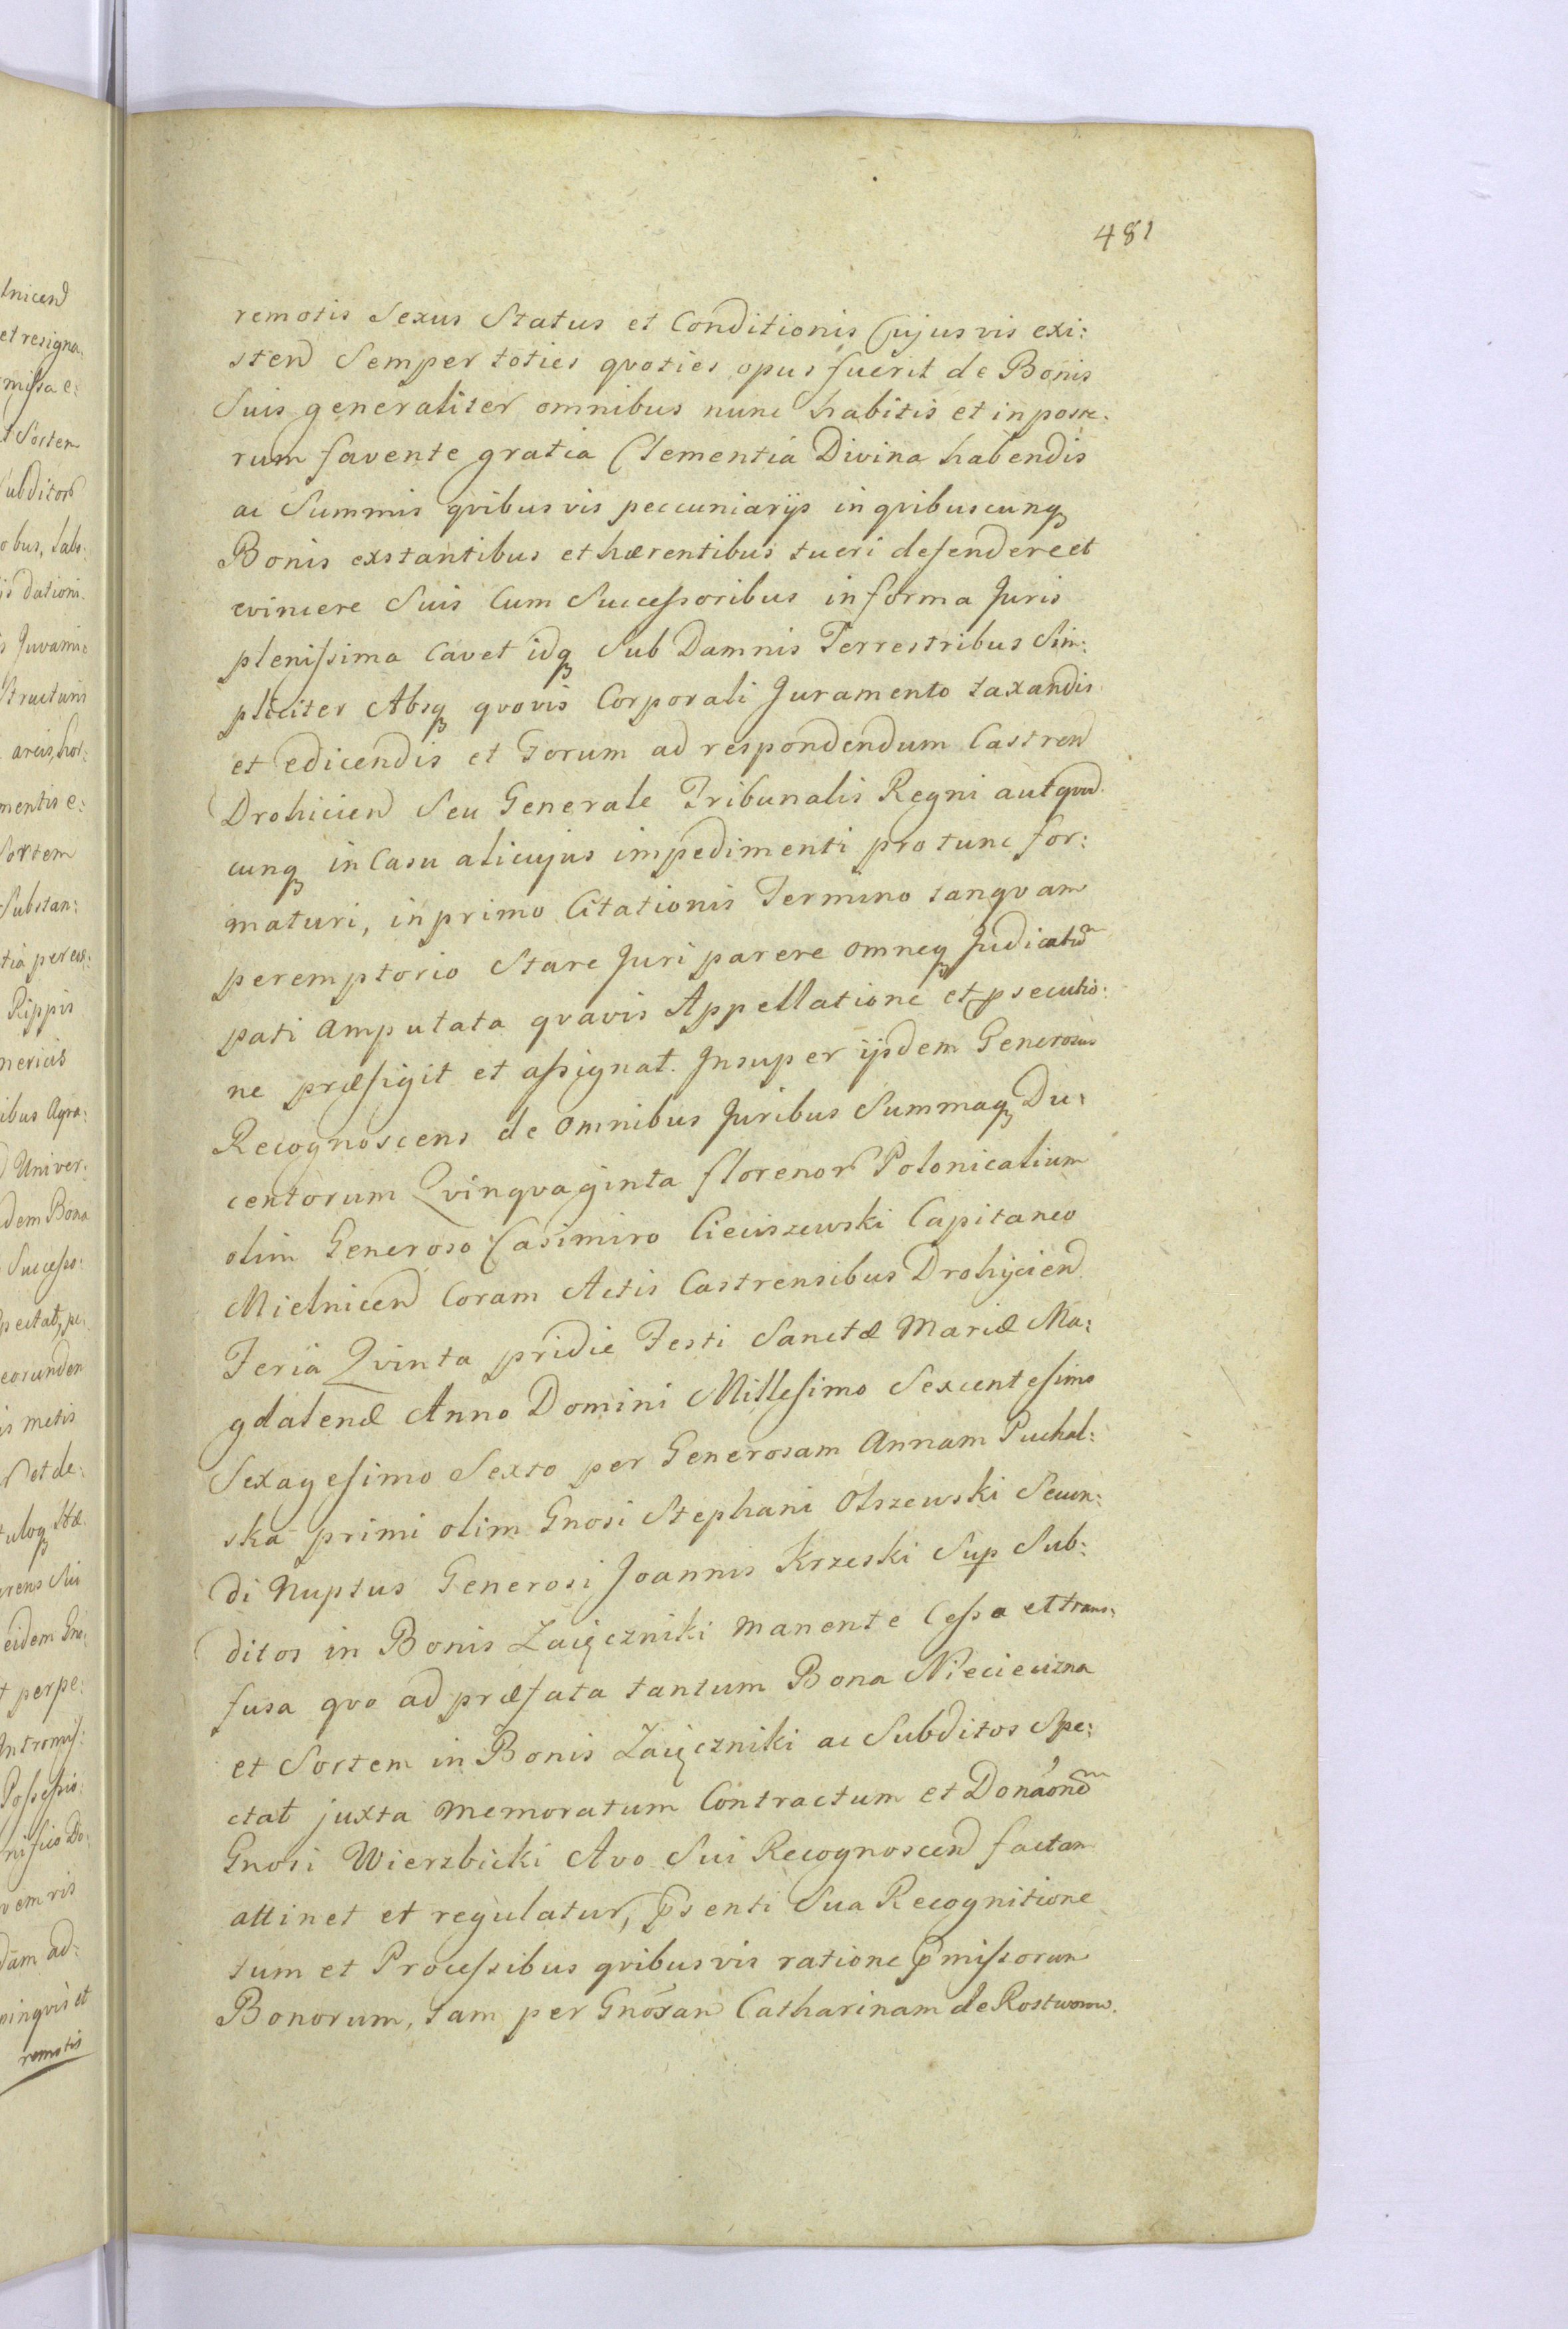 481
remotis Sexus Status et Conditionis Cujusvis exi:
stend Semper toties qvoties opus fuerit de Bonis
Suis generaliter omnibus nunc habitis et in poste:
rum favente gratia Clementia Divina habendis
ac Summis qvibusvis peccuniarijs in qvibuscunq
Bonis exstantibus et hærentibus tueri defendere et
evincere Suis Cum Successoribus in forma Juris
plenissima Cavet idq Sub Damnis Terrestribus Sim:
pliciter Absq qvovis Corporali Juramento taxandis
et edicendis et Forum ad respondendum Castren
Drohicien Seu Generale Tribunalis Regni aut qvod
cunq in Casu alicujus impedimenti pro tunc for:
maturi, in primo Citationis Termino tanqvam
peremptorio Stare Juri parere omneq Judicatū
pati amputata qvavis Appellatione et psecutio:
ne præfigit et assignat. Insuper ijsdem Generosus
Recognoscens de omnibus Juribus Summaq Du:
centorum Qvinqvaginta florenor Polonicalium
olim Generoso Casimiro Cieciszewski Capitaneo
Mielnicen Coram Actis Castrensibus Drohicien
Feria Qvinta pridie Festi Sanctæ Mariæ Ma:
gdalenæ Anno Domini Millesimo Sexcentesimo
Sexagesimo Sexto per Generosam Annam Puchal:
ska primi olim Gnosi Stephani Olszewski Secun:
di Nuptus Generosi Joannis Krzeski Sup Sub:
ditos in Bonis Zaięczniki manente Cessa et trans:
fusa qvo ad præfata tantum Bona Nieciecizna
et Sortem in Bonis Zaięczniki ac Subditos Spe:
ctat juxta memoratum Contractum et Donaōnē
Gnosi Wierzbicki Avo Sui Recognoscen factam
attinet et regulatur, psenti Sua Recognitione
tum et Processibus qvibusvis ratione pmissorum
Bonorum, tam per Gnosam Catharinam de
lnicen
et resigna:
missa e:
t Sortem
Subditor
obus, Labo:
js dationi
s Juvami:
structuris
areis, hor:
mentis e:
Sortem
Substan:
Rippis
ibus Agra:
Univer:
dem Bona
Successo:
eorundem
is metis
et de:
rens Sui
eidem Gno:
t perpe:
Intromis:
Possessio:
dam ad:
inqvis et
remotis